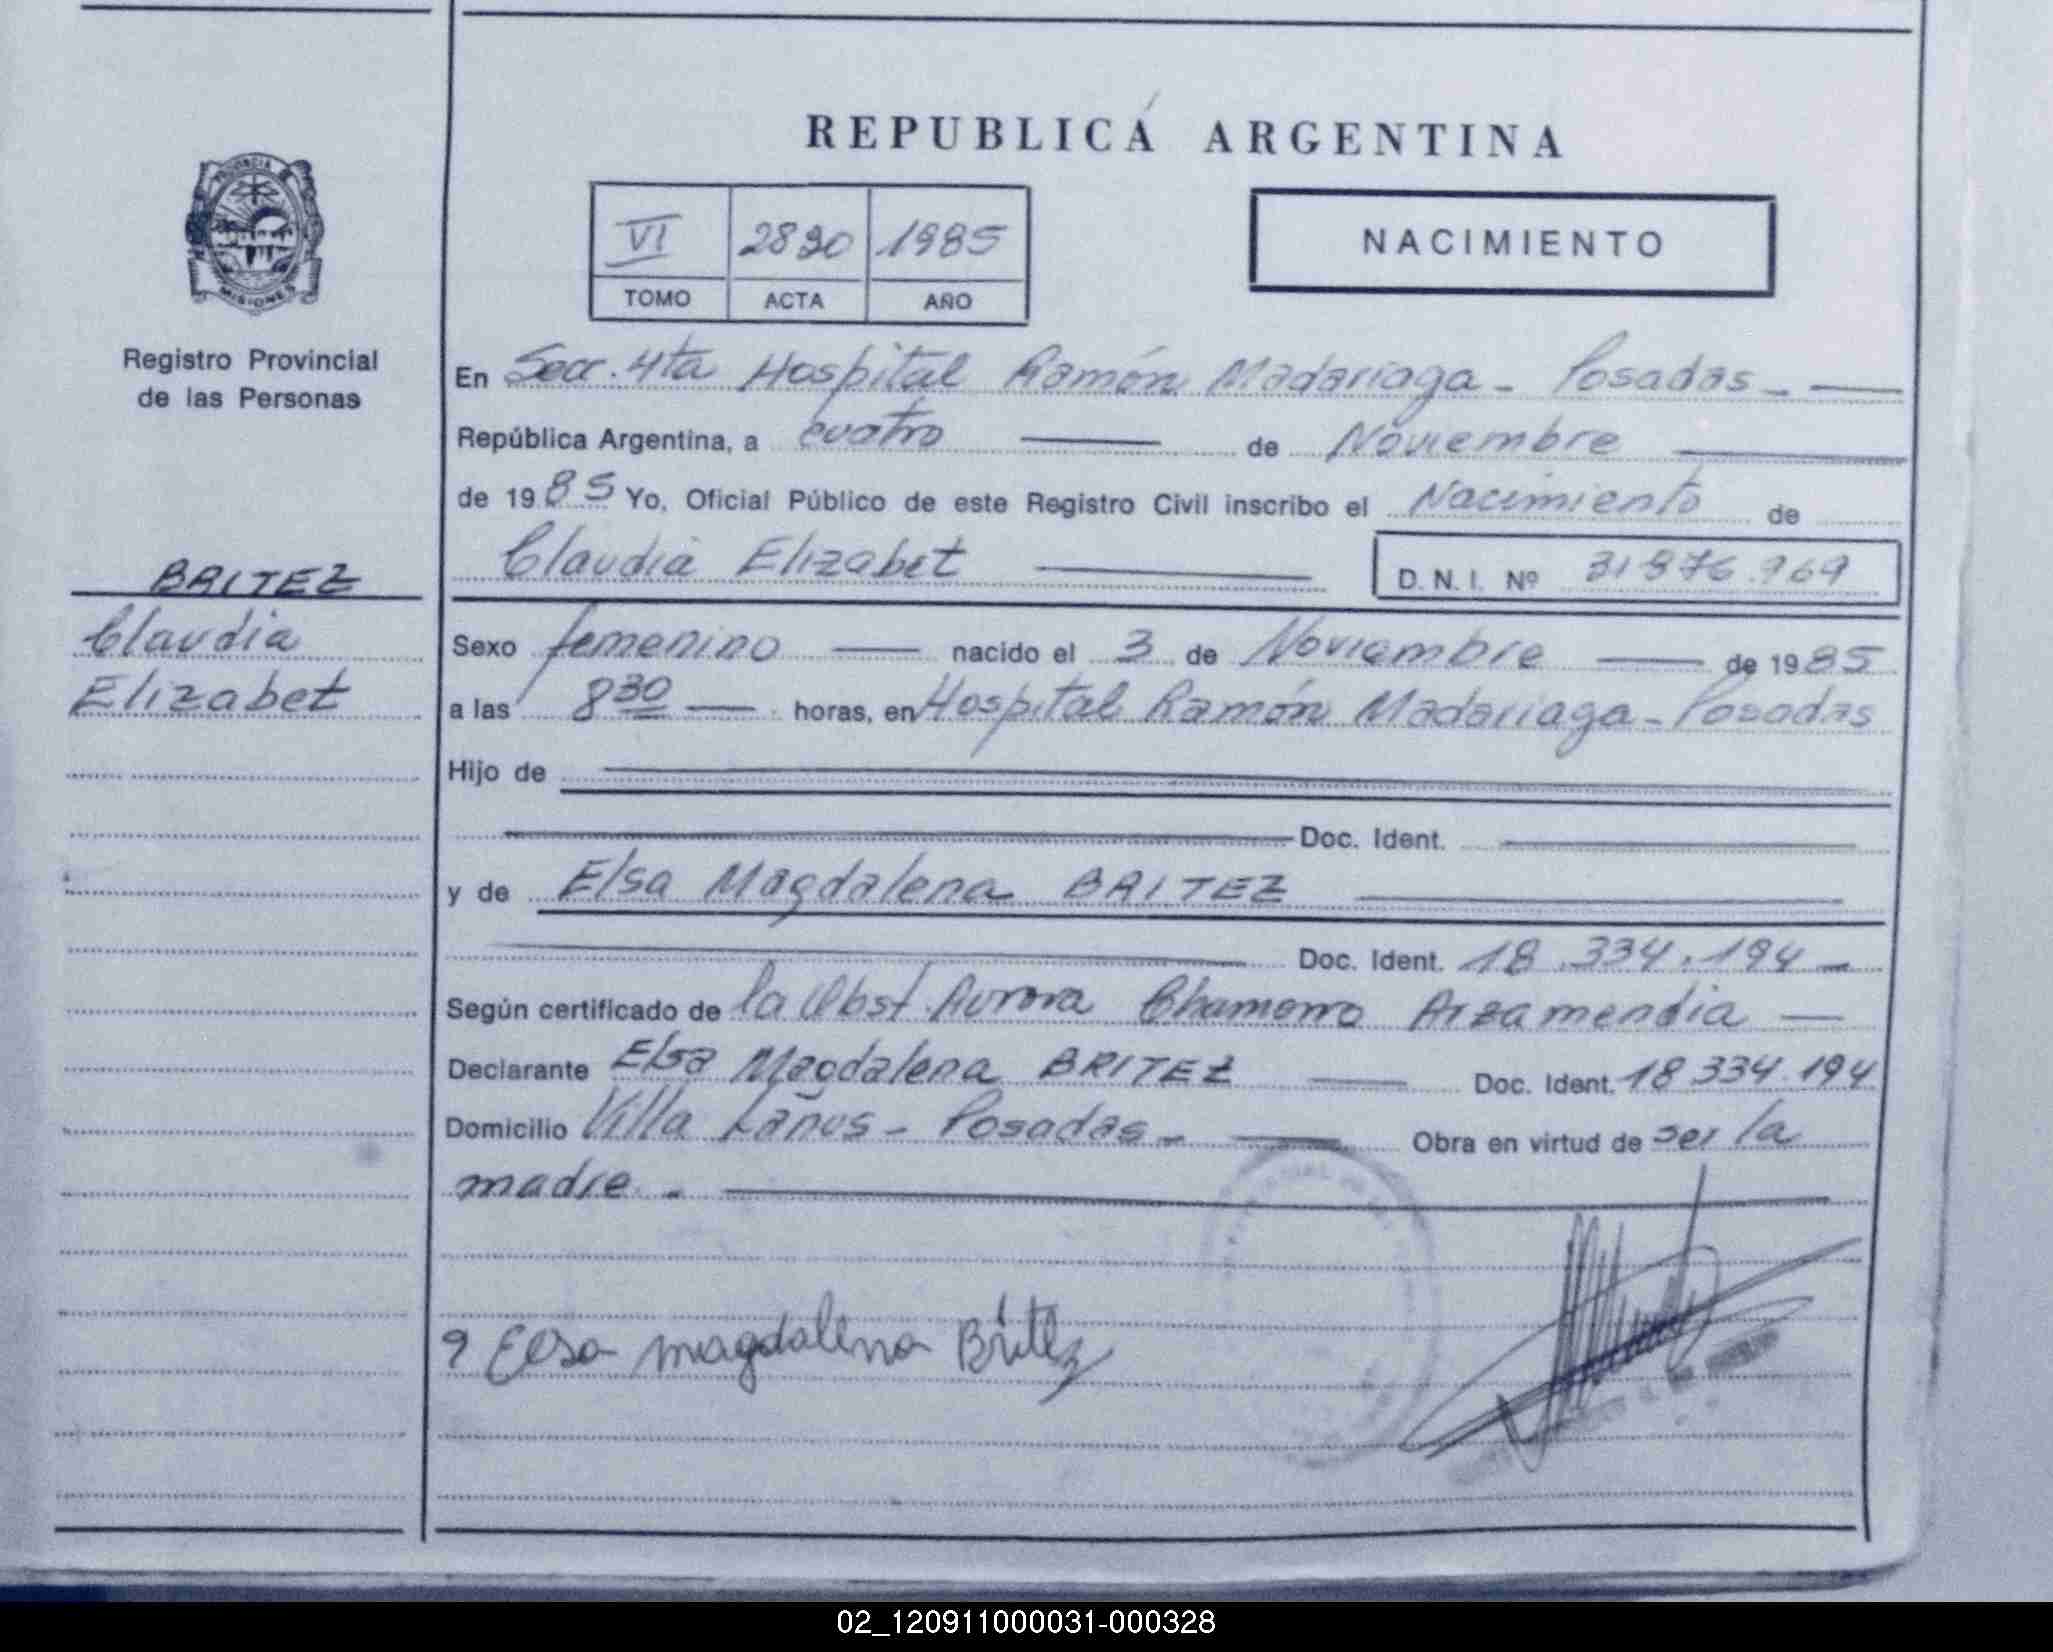 REPUBLICA ARGENTINA
PROVINCIA DE
MISIONES
Registro Provincial
de las Personas
VI 2890 1985
TOMO ACTA AÑO
NACIMIENTO
En Secc. 4ta Hospital Ramón Madariaga - Posadas -
República Argentina, a cuatro de Noviembre
de 1985 Yo, Oficial Público de este Registro Civil inscribo el Nacimiento de
Claudia Elizabet D. N. I. Nº 31876.969
BRITEZ
Claudia
Elizabet
Sexo femenino nacido el 3 de Noviembre de 1985
a las 8 30 horas, en Hospital Ramón Madariaga - Posadas
Hijo de
Doc. Ident.
y de Elsa Magdalena BRITEZ
Doc. Ident. 18.334.194 -
Según certificado de la Obst. Aurora Chamorro Arzamendia
Declarante Elsa Magdalena BRITEZ Doc. Ident. 18.334.194
Domicilio Villa Lanús - Posadas - Obra en virtud de ser la
madre. -
Elsa magdalena Britez
02_120911000031-000328